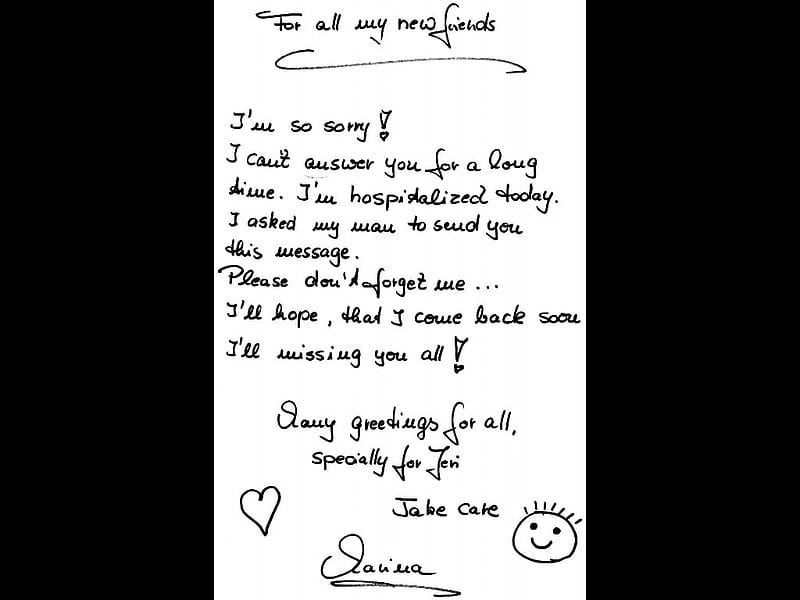 For all my new friends
I'm so sorry!
I can't answer you for a long
time. I'm hospitalized today.
I asked my man to send you
this message.
Please don't forget me ...
I'll hope, that I come back soon
I'll missing you all!
Many greetings for all,
specially for Jeri
Take care
Marina